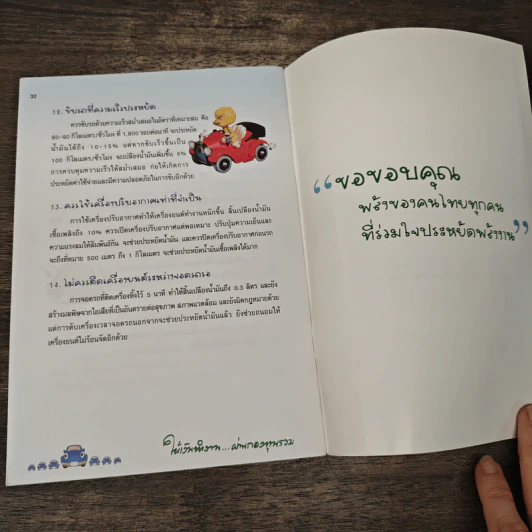 32
12. ขับรถที่ความเร็วประหยัด
ควรขับรถด้วยความเร็วสม่ำเสมอในอัตราที่เหมาะสม คือ
80-90 กิโลเมตร/ชั่วโมง ที่ 1,800 รอบต่อนาที จะประหยัด
น้ำมันได้ถึง 10-15% แต่หากขับเร็วขึ้นเป็น
100 กิโลเมตร/ชั่วโมง จะเปลืองน้ำมันเพิ่มขึ้น 6%
การควบคุมความเร็วให้สม่ำเสมอ ก่อให้เกิดการ
ประหยัดค่าใช้จ่ายและมีความปลอดภัยในการขับอีกด้วย
13. ควรใช้เครื่องปรับอากาศเท่าที่จำเป็น
การใช้เครื่องปรับอากาศทำให้เครื่องยนต์ทำงานหนักขึ้น สิ้นเปลืองน้ำมัน
เชื้อเพลิงถึง 10% ควรเปิดเครื่องปรับอากาศแต่พอเหมาะ ปรับปุ่มความเย็นและ
ความแรงลมให้สัมพันธ์กัน จะช่วยประหยัดน้ำมัน และควรปิดเครื่องปรับอากาศก่อนรถ
จะถึงที่หมาย 500 เมตร ถึง 1 กิโลเมตร จะช่วยประหยัดน้ำมันเชื้อเพลิงได้มาก
14. ไม่ควรติดเครื่องยนต์ระหว่างจอดรถรอ
การจอดรถที่ติดเครื่องทิ้งไว้ 5 นาที ทำให้สิ้นเปลืองน้ำมันถึง 0.3 ลิตร และยัง
สร้างมลพิษจากไอเสียที่เป็นอันตรายต่อสุขภาพ สภาพแวดล้อม และยังผิดกฎหมายด้วย
แต่การดับเครื่องเวลาจอดรถนอกจากจะช่วยประหยัดน้ำมันแล้ว ยังช่วยถนอมให้
เครื่องยนต์ไม่ร้อนจัดอีกด้วย
ให้เงินทำงาน...ผ่านกองทุนรวม
“ขอขอบคุณ
พลังของคนไทยทุกคน
ที่ร่วมใจประหยัดพลังงาน”